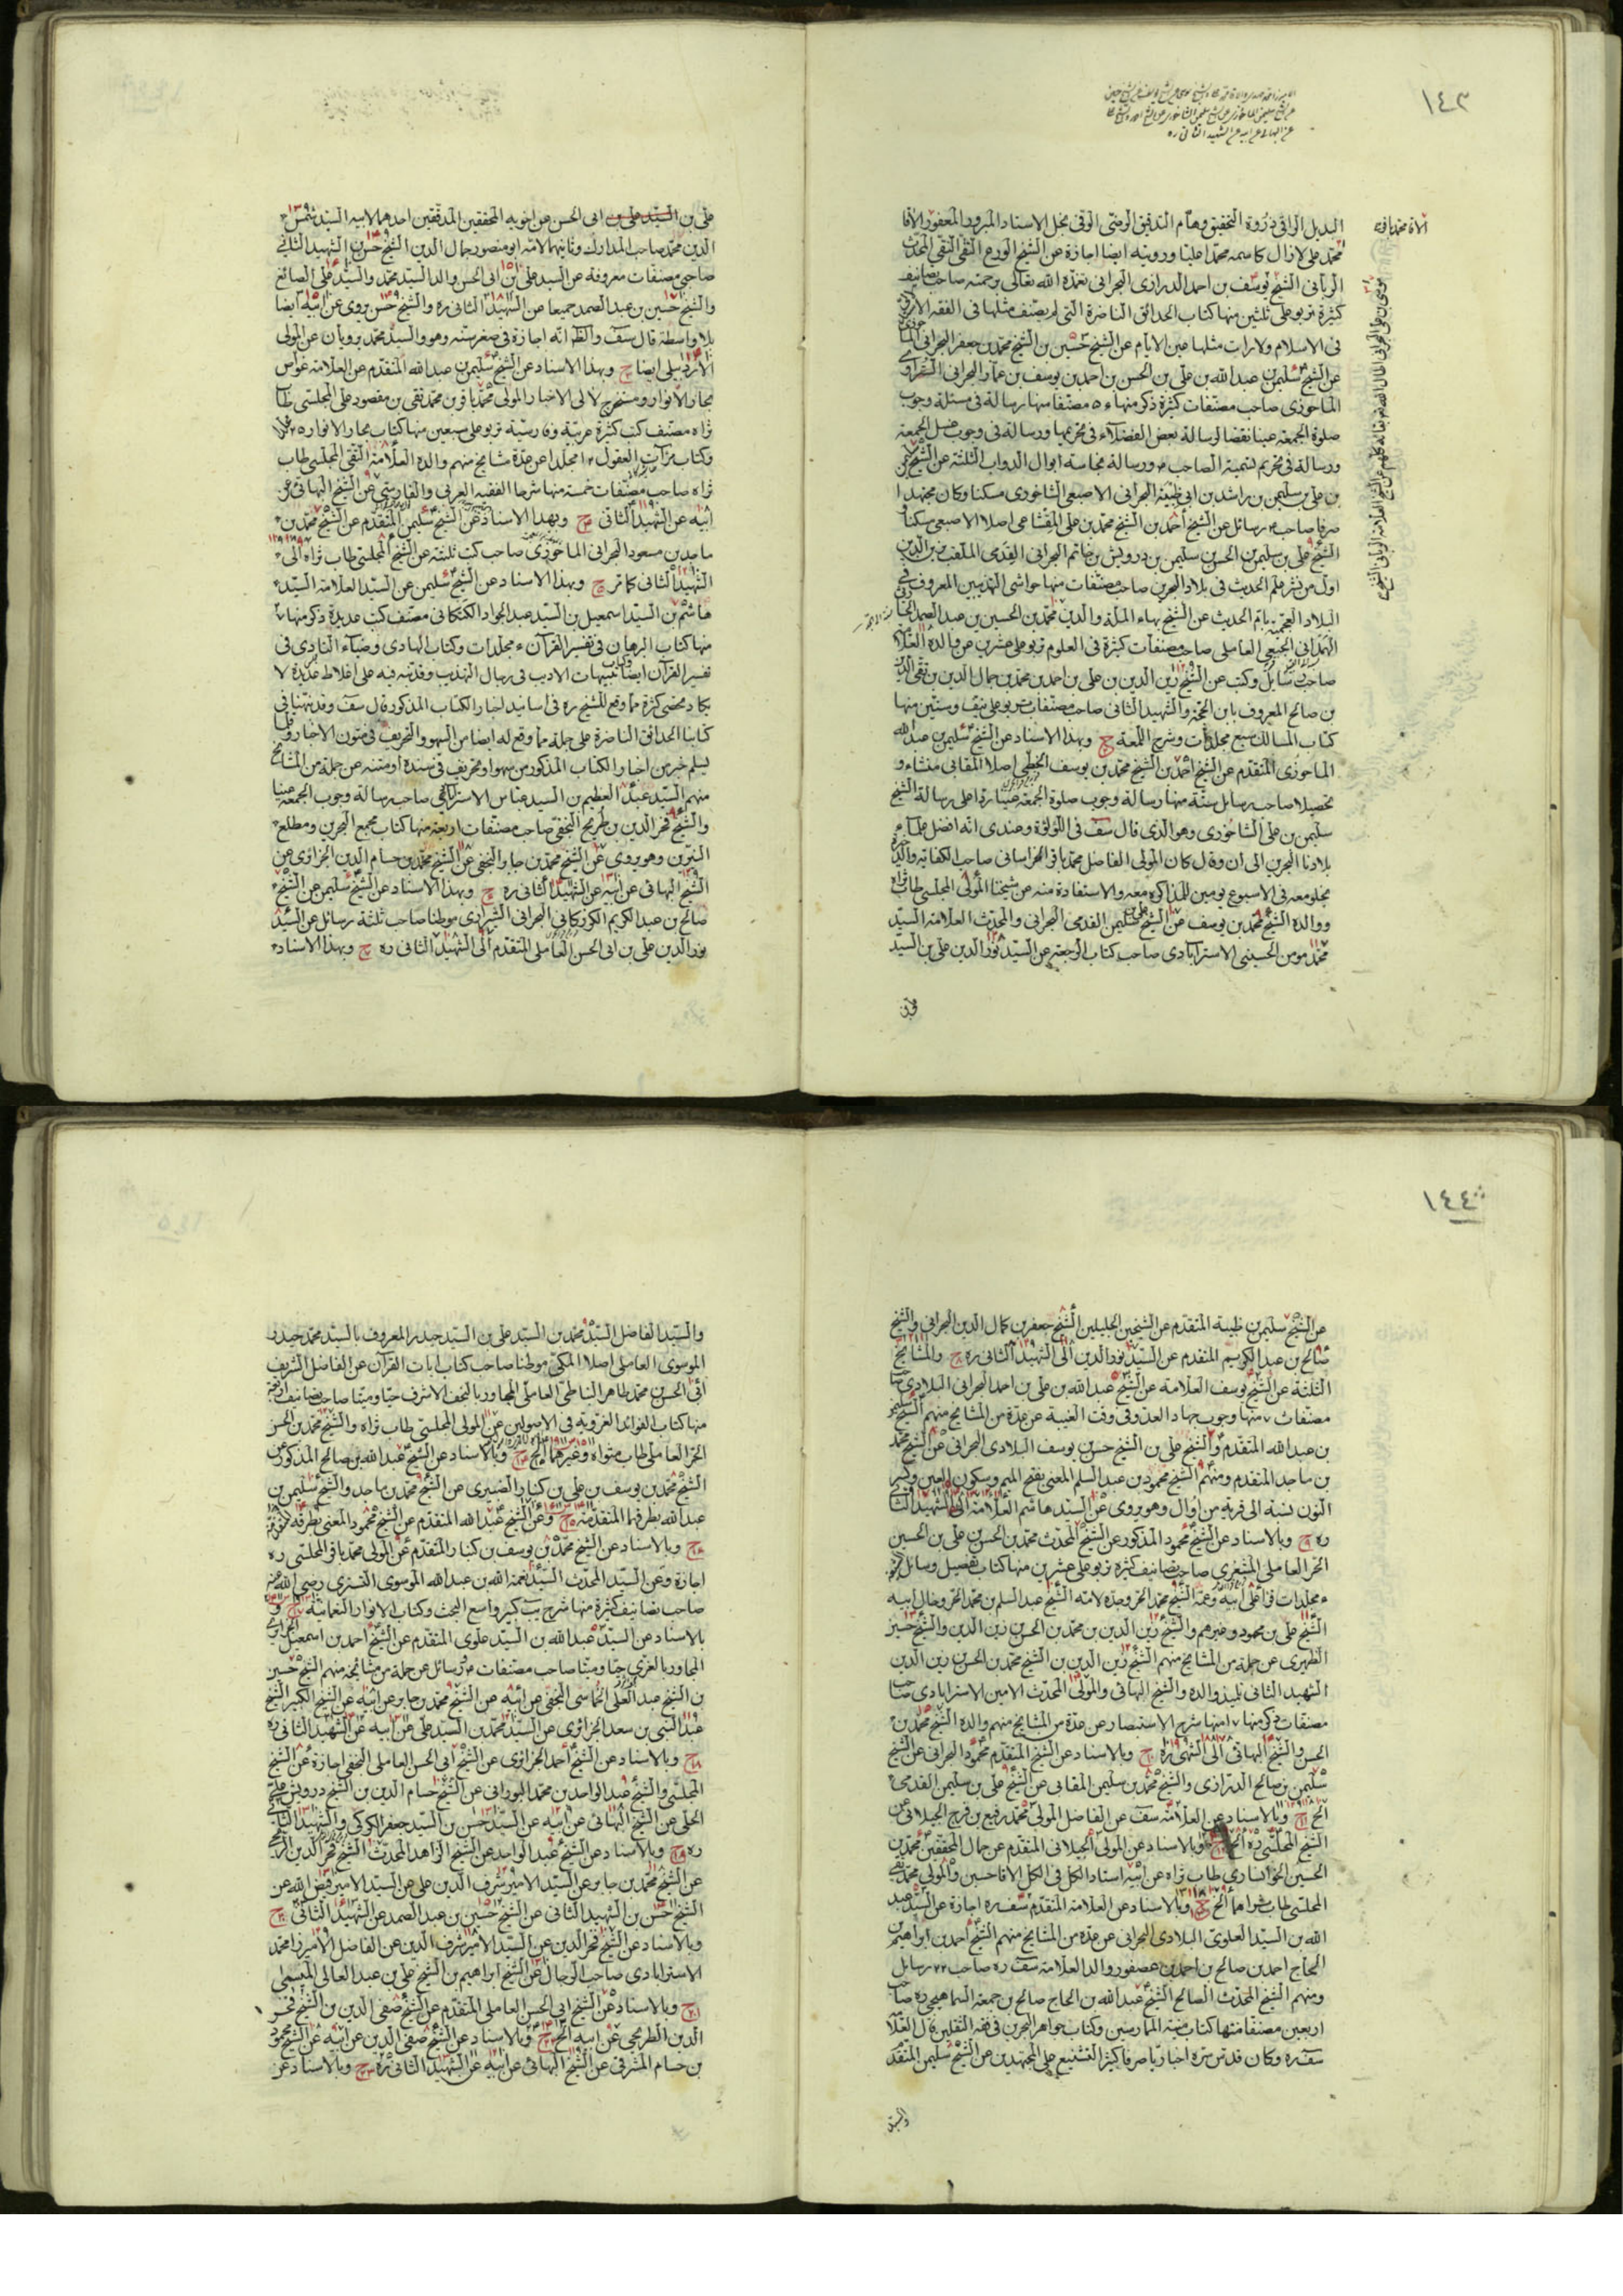 ١٤٣
البديل الراقي ذروة التحقيق وهام التدقيق الرضي الوفي مجل الاستاد المبرور المغفور الاقا
محمد علي لازال كاسمه محمدا عليا ورويته ايضا اجازة عن الشيخ الورع التقي النقي المحدث
الرباني الشيخ يوسف بن احمد الدرازي البحراني تغمده الله تعالى برحمته صاحب تصانيف
كثيرة تربو على ثلثين منها كتاب الحدائق الناضرة التي لم يصنف مثلها في الفقه
في الاسلام ولا رات مثلها عين الايام عن الشيخ حسين بن الشيخ محمد بن جعفر البحراني
عن الشيخ سليمن بن عبد الله بن علي بن الحسن بن احمد بن يوسف بن عمار البحراني
الماحوزي صاحب مصنفات كثيرة ذكر منها ٥٠ مصنفا منها رسالة في مسئلة وجوب
صلوة الجمعة عينا نقضا لرسالة بعض الفضلاء في تحريمها ورسالة في وجوب غسل الجمعة
ورسالة في تحريم تسمية الصاحب ع ورسالة نجاسة ابوال الدواب الثلثة عن الشيخ
بن علي بن سليمن بن راشد بن ابي ظبية البحراني الاصبعي الشاخوري مسكنا وكان مجتهدا
صرفا صاحب رسائل عن الشيخ احمد بن الشيخ محمد بن علي المقشاعي اصلا الاصبعي مسكنا
الشيخ علي بن سليمن بن الحسن بن سليمن بن درويش بن حاتم البحراني القدمي الملقب زين الدين
اول من نشر علم الحديث في بلاد البحرين صاحب مصنفات منها حواشي التهذيبين المعروف في
البلاد العجمية بام الحديث عن الشيخ بهاء الملة والدين محمد بن الحسين بن عبد الصمد
الهمداني الجبعي العاملي صاحب مصنفات كثيرة في العلوم تربو على عشرين عن والده
صاحب رسايل وكتب عن الشيخ زين الدين بن علي بن احمد بن محمد بن جمال الدين بن تقي الدين
بن صالح المعروف بابن الحجة والشهيد الثاني صاحب مصنفات تربو على نيف وستين منها
كتاب المسالك سبع مجلدات وشرح اللمعة ح وبهذا الاسناد عن الشيخ سليمن بن عبد الله
الماحوزي المتقدم عن الشيخ احمد بن الشيخ محمد بن يوسف الخطي اصلا المقابي منشاء و
تحصيلا صاحب رسايل ستة منها رسالة وجوب صلوة الجمعة عينا ردا على رسالة الشيخ
سليمن بن علي الشاخوري وهو الذي قال سف في اللؤلؤة وعندي انه افضل علماء
بلادنا البحرين الى ان وقال كان المولى الفاضل محمد باقر الخراساني صاحب الكفاية والذخيرة
يخلو معه في الاسبوع يومين للمذاكرة معه والاستفادة منه عن شيخنا المولى المجلسي طاب ثراه
ووالده الشيخ محمد بن يوسف عن الشيخ علي بن سليمن القدمي البحراني والمحدث العلامة السيد
محمد مومن الحسيني الاسترابادي صاحب كتاب الرجعة عن السيد نور الدين علي بن السيد
علي بن
علي بن السيد علي بن ابي الحسن عن اخويه المحققين المدققين احدهما لابيه السيد شمس
الدين محمد صاحب المدارك وثانيهما لامه ابو منصور جمال الدين الشيخ حسن بن الشهيد الثاني
صاحبي مصنفات معروفة عن السيد علي بن ابي الحسن والد السيد محمد والسيد علي الصائغ
والشيخ حسين بن عبد الصمد جميعا عن الشهيد الثاني ره والشيخ حسن يروي عن ابيه ايضا
بلا واسطة قال سف والظ انه اجازة في صغر سنه وهو والسيد محمد يرويان عن المولى
الاردبيلي ايضا ح وبهذا الاسناد عن الشيخ سليمن بن عبد الله المتقدم عن العلامة غواص
بحار الانوار ومستخرج لالي الاخبار المولى محمد باقر بن محمد تقي بن مقصود علي المجلسي طاب
ثراه مصنف كتب كثيرة عربية وفارسية تربو على سبعين منها كتاب بحار الانوار ٢٥ مجلدا
وكتاب مرآت العقول ١٢ مجلدا عن عدة مشايخ منهم والده العلامة التقي المجلسي طاب
ثراه صاحب مصنفات خمسة منها شرحا الفقيه العربي والفارسي عن الشيخ البهائي عن
ابيه عن الشهيد الثاني ح وبهذا الاسناد عن الشيخ سليمن المتقدم عن الشيخ محمد بن
ماجد بن مسعود البحراني الماحوزي صاحب كتب ثلثة عن الشيخ المجلسي طاب ثراه الى
الشهيد الثاني كما مر ح وبهذا الاسناد عن الشيخ سليمن عن السيد العلامة السيد
هاشم بن السيد اسمعيل بن السيد عبد الجواد الكتكاني مصنف كتب عديدة ذكر منها
منها كتاب البرهان في تفسير القرآن ٤ مجلدات وكتاب الهادي وضياء النادي في
تفسير القرآن ايضا وتنبيهات الاديب في رجال التهذيب وقد نبه فيه على اغلاط عديدة لا
يكاد تحصى كثرة مما وقع للشيخ ره في اسانيد اخبار الكتاب المذكور قال سف وقد نبهنا في
كتابنا الحدائق الناضرة على جملة مما وقع له ايضا من السهو والتحريف في متون الاخبار وقلما
يسلم خبر من اخبار الكتاب المذكور من سهو او تحريف في سنده او متنه عن جملة من المشايخ
منهم السيد عبد العظيم بن السيد عباس الاسترابادي صاحب رسالة وجوب الجمعة عينا
والشيخ فخر الدين بن طريح النجفي صاحب مصنفات اربعة منها كتاب مجمع البحرين ومطلع
النيرين وهو يروي عن الشيخ محمد بن جابر النجفي عن الشيخ محمد بن حسام الدين الجزائري عن
الشيخ البهائي عن ابيه عن الشهيد الثاني ره ح وبهذا الاسناد عن الشيخ سليمن عن الشيخ
صالح بن عبد الكريم الكرزكاني البحراني الشيرازي موطنا صاحب ثلثة رسائل عن السيد
نور الدين علي بن ابي الحسن العاملي المتقدم الى الشهيد الثاني ره ح وبهذا الاسناد
١٤٤
عن الشيخ سليمن بن ظبية المتقدم عن الشيخين الجليلين الشيخ جعفر بن كمال الدين البحراني والشيخ
صالح بن عبد الكريم المتقدم عن السيد نور الدين الى الشهيد الثاني ره ح والمشايخ
الثلثة عن الشيخ يوسف العلامة عن الشيخ عبد الله بن علي بن احمد البحراني البلادي
مصنفات ٧ منها وجوب جهاد العدو في وقت الغيبة عن عدة من المشايخ منهم الشيخ
بن عبد الله المتقدم والشيخ علي بن الشيخ حسن بن يوسف البلادي البحراني عن الشيخ محمد
بن ماجد المتقدم ومنهم الشيخ محمود بن عبد السلم المعني بفتح الميم وسكون العين وكسر
النون نسبة الى قرية من اوال وهو يروي عن السيد هاشم العلامة الى الشهيد
ره ح وبالاسناد عن الشيخ محمود المذكور عن الشيخ المحدث محمد بن الحسن بن علي بن الحسين
الحر العاملي المشغري صاحب تصانيف كثيرة تربو على عشرين منها كتاب تفصيل وسائل
الشيخ علي بن محمود وغيرهم والشيخ زين الدين بن محمد بن الحسن بن زين الدين والشيخ حسين
الظهيري عن جملة من المشايخ منهم الشيخ زين الدين بن الشيخ محمد بن الحسن بن زين الدين
الشهيد الثاني تلميذ والده والشيخ البهائي والمولى المحدث الامين الاسترابادي
مصنفات ذكر منها ١٧ منها شرح الاستبصار عن عدة من المشايخ منهم والده الشيخ محمد بن
الحسن والشيخ البهائي الى ح وبالاسناد عن الشيخ المتقدم محمود البحراني عن الشيخ
سليمن بن صالح الدرازي والشيخ محمد بن سليمن المقابي عن الشيخ علي بن سليمن القدمي
الخ ح وبالاسناد عن العلامة سف عن الفاضل المولى محمد رفيع بن فرج الجيلاني عن
الشيخ المجلسي ره الخ وبالاسناد عن المولى الجيلاني المتقدم عن جمال المحققين محمد بن
الحسين الخوانساري طاب ثراه عن ابيه استاد الكل في الكل الاقا حسين والمولى محمد تقي
المجلسي طاب ثراهما الخ وبالاسناد عن العلامة المتقدم سف ره اجازة عن السيد عبد
الله بن السيد العلوي البلادي البحراني عن عدة من المشايخ منهم الشيخ احمد بن ابراهيم
الحاج احمد بن صالح بن احمد بن عصفور والد العلامة سف ره صاحب رسائل
ومنهم الشيخ المحدث الصالح الشيخ عبد الله بن الحاج صالح بن جمعة السماهيجي ره صاحب
اربعين مصنفا منها كتاب منية الممارسين وكتاب جواهر البحرين في فقه الثقلين قال العلامة
سف ره وكان قدس سره اخباريا صرفا كثير التشنيع على المجتهدين عن الشيخ سليمن المتقدم
والسيد
والسيد الفاضل السيد محمد بن السيد علي بن السيد حيدر المعروف بالسيد محمد حيدر
الموسوي العاملي اصلا المكي موطنا صاحب كتاب ايات القرآن عن الفاضل الشريف
ابي الحسن محمد طاهر النباطي العاملي المجاور بالنجف الاشرف حيا وميتا صاحب تصانيف اربعة
منها كتاب الفوائد الغروية في الاصولين عن المولى المجلسي طاب ثراه والشيخ محمد بن الحسن
الحر العاملي طاب مثواه وغيرهما الخ ح وبالاسناد عن الشيخ عبد الله بن صالح المذكور عن
الشيخ محمد بن يوسف بن علي بن كنبار الضبيري عن الشيخ محمد بن ماجد والشيخ سليمن بن
عبد الله بطرقهما المتقدمة ح وعن الشيخ عبد الله المتقدم عن الشيخ محمود المعني بطرقه
ح وبالاسناد عن الشيخ محمد بن يوسف بن كنبار المتقدم عن المولى محمد باقر المجلسي ره
اجازة وعن السيد المحدث السيد نعمة الله بن عبد الله الموسوي التستري رضي الله عنه
صاحب تصانيف كثيرة منها شرح يب كبير واسع البحث وكتاب الانوار النعمانية ح و
بالاسناد عن السيد عبد الله بن السيد علوي المتقدم عن الشيخ احمد بن اسمعيل الجزائري
المجاور بالغري حيا وميتا صاحب مصنفات ورسائل عن جملة من مشايخه منهم الشيخ حسين
بن الشيخ عبد العلي الخماسي النجفي عن ابيه عن الشيخ محمد بن جابر عن ابيه عن الشيخ الكبير الشيخ
عبد النبي بن سعد الجزائري عن السيد محمد بن السيد علي عن ابيه عن الشهيد الثاني ره
ح وبالاسناد عن الشيخ احمد الجزائري عن الشيخ ابي الحسن العاملي النجفي اجازة عن الشيخ
المجلسي والشيخ عبد الواحد بن محمد البوراني عن الشيخ حسام الدين بن الشيخ درويش علي
الحلي عن الشيخ البهائي عن ابيه عن السيد حسن بن السيد جعفر الكركي والشهيد الثاني
ره ح وبالاسناد عن الشيخ عبد الواحد عن الشيخ الزاهد المحدث الشيخ فخر الدين
عن الشيخ محمد بن جابر عن السيد الامير شرف الدين علي عن السيد الامير فيض الله عن
الشيخ حسن بن الشهيد الثاني عن الشيخ حسين بن عبد الصمد عن الشهيد الثاني ح
وبالاسناد عن الشيخ فخر الدين عن السيد الامير شرف الدين عن الفاضل الاميرزا محمد
الاسترابادي صاحب الرجال عن الشيخ ابراهيم بن الشيخ علي بن عبد العالي الميسي
ح وبالاسناد عن الشيخ ابي الحسن العاملي المتقدم عن الشيخ صفي الدين بن الشيخ فخر
الدين الطريحي عن ابيه الخ ح وبالاسناد عن الشيخ صفي الدين عن ابيه عن الشيخ محمود
بن حسام المشرفي عن الشيخ البهائي عن ابيه عن الشهيد الثاني ره ح وبالاسناد عن